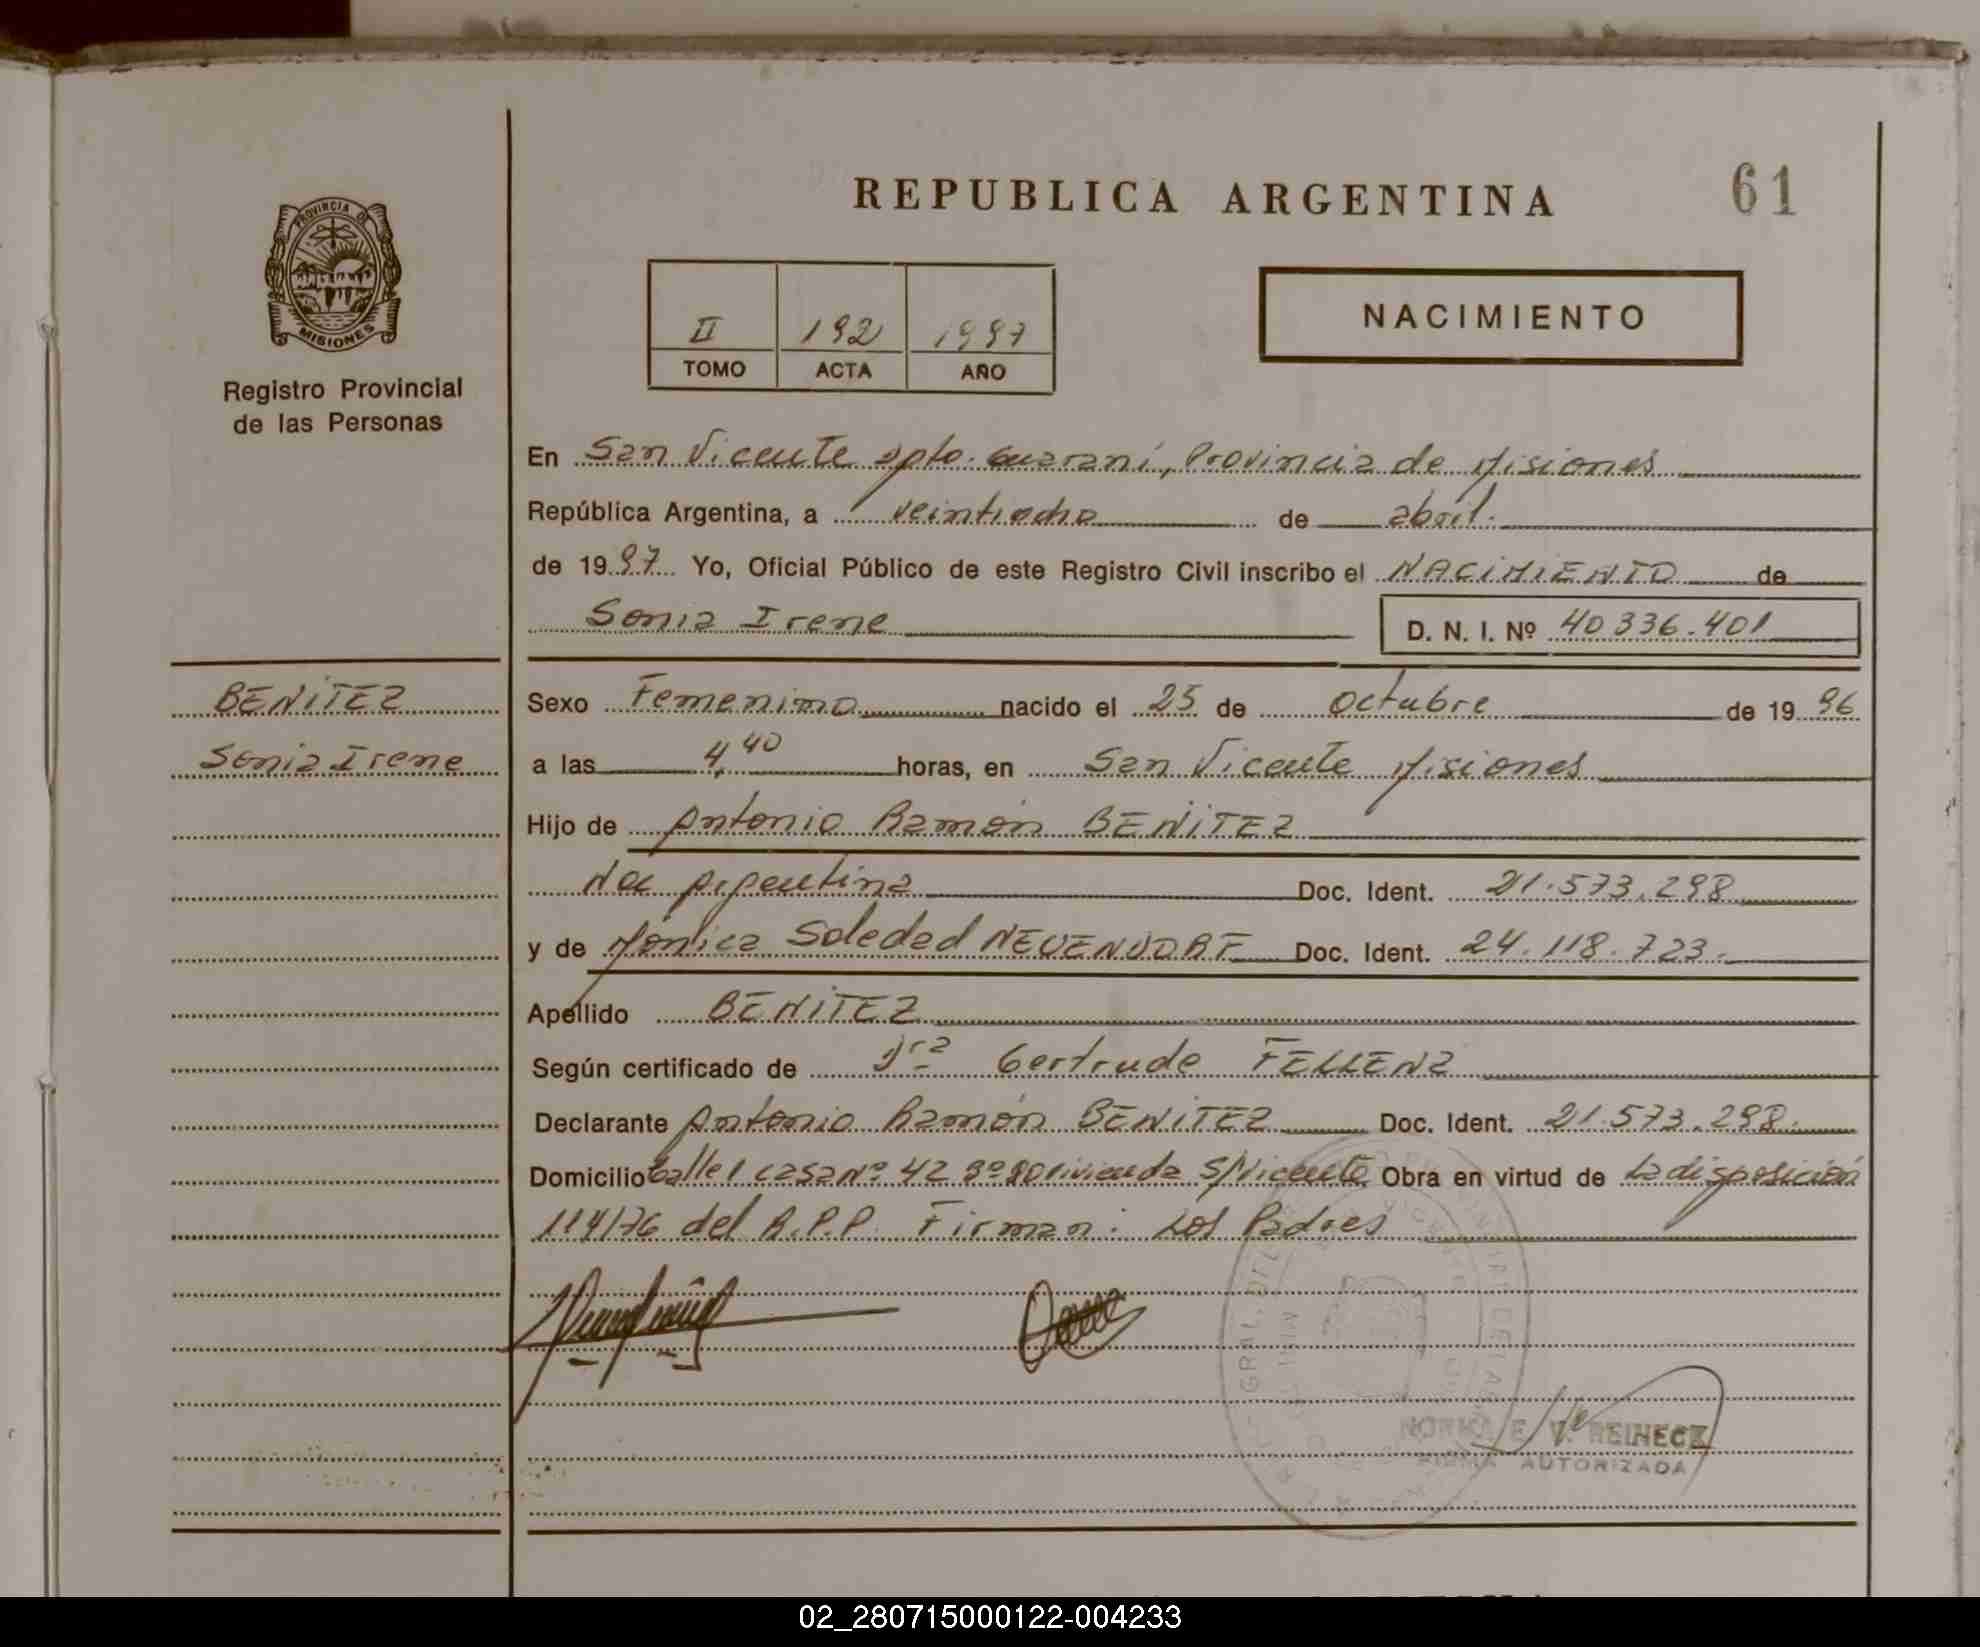 REPUBLICA ARGENTINA
61
PROVINCIA DE
MISIONES
Registro Provincial
de las Personas
II 192 1997
TOMO ACTA AÑO
NACIMIENTO
En San Vicente Dpto. Guaraní, Provincia de Misiones
República Argentina, a veintiocho de abril.
de 1997 Yo, Oficial Público de este Registro Civil inscribo el NACIMIENTO de
Sonia Irene D. N. I. Nº 40336.401
BENITEZ
Sonia Irene
Sexo Femenino nacido el 25 de octubre de 1996
a las 4,40 horas, en San Vicente Misiones
Hijo de Antonio Ramón BENITEZ
Nac Argentina Doc. Ident. 21.573.298
y de Mónica Soledad NEUENDORF Doc. Ident. 24.118.723.
Apellido BENITEZ
Según certificado de Dra Gertrude FELLENZ
Declarante Antonio Ramón BENITEZ Doc. Ident. 21.573.298.
Domicilio Calle 1 casa Nº 42 Bº 80 vivienda S/Vicente Obra en virtud de La disposición
114/76 del R.P.P. Firman: Los Padres
NORMA E. V. REINECK
FIRMA AUTORIZADA
02_280715000122-004233